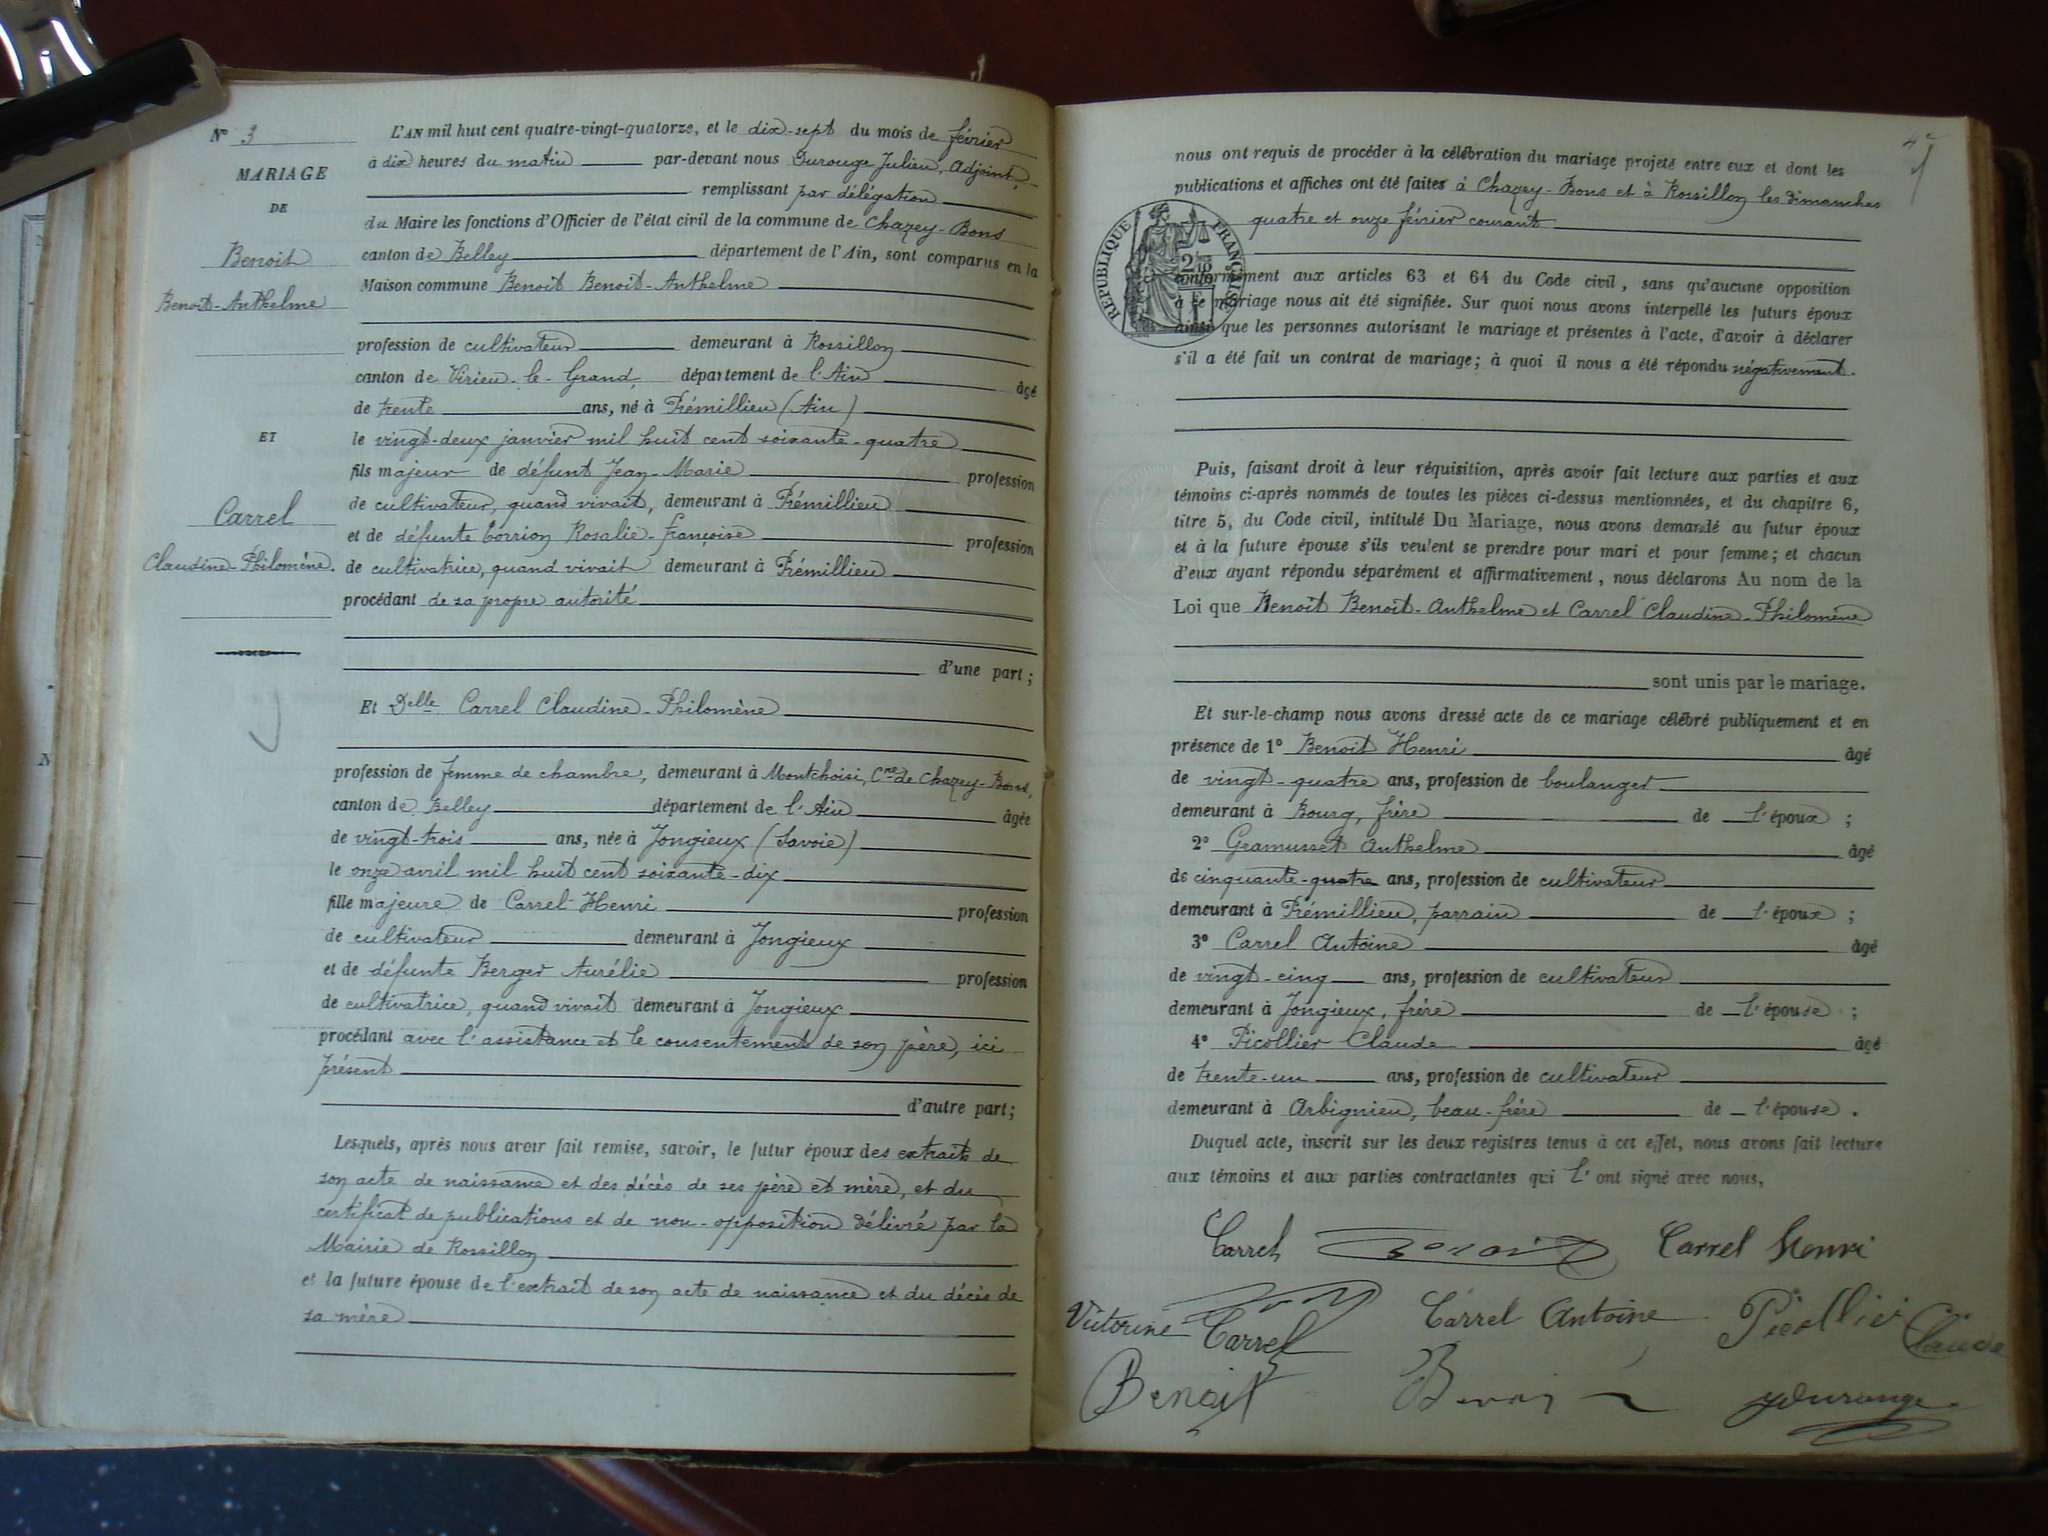 N° 3
MARIAGE
DE
Benoit
Benoit-Anthelme
ET
Carrel
Claudine-Philomène.
L'AN mil huit cent quatre-vingt-quatorze, et le dix-sept du mois de février
à dix heures du matin par-devant nous Durouge Julien, Adjoint,
remplissant par délégation
du Maire les fonctions d'Officier de l'état civil de la commune de Chazey-Bons
canton de Belley département de l'Ain, sont comparus en la
Maison commune Benoit Benoit-Anthelme
profession de cultivateur demeurant à Rossillon
canton de Virieu-le-Grand, département de l'Ain âgé
de trente ans, né à Prémillieu (Ain)
le vingt-deux janvier mil huit cent soixante-quatre
fils majeur de défunt Jean-Marie profession
de cultivateur, quand vivait, demeurant à Prémillieu
et de défunte Rosalie-françoise profession
de cultivatrice, quand vivait demeurant à Prémillieu
procédant de sa propre autorité
d'une part;
Et Delle Carrel Claudine-Philomène
profession de femme de chambre, demeurant à Montchoisi, Cne de Chazey-Bons,
canton de Belley département de l'Ain âgée
de vingt-trois ans, née à Jongieux (Savoie)
le onze avril mil huit cent soixante-dix
fille majeure de Carrel Henri profession
de cultivateur demeurant à Jongieux
et de défunte Berger Aurélie profession
de cultivatrice, quand vivait demeurant à Jongieux
procédant avec l'assistance et le consentement de son père, ici
présent
d'autre part;
Lesquels, après nous avoir fait remise, savoir, le futur époux des extraits de
son acte de naissance et des décès de ses père et mère, et du
certificat de publications et de non-opposition délivré par la
Mairie de Rossillon
et la future épouse de l'extrait de son acte de naissance et du décès de
sa mère
nous ont requis de procéder à la célébration du mariage projeté entre eux et dont les
publications et affiches ont été faites à Chazey-Bons et à Rossillon les dimanches
quatre et onze février courant
RÉPUBLIQUE FRANÇAISE
conformément aux articles 63 et 64 du Code civil, sans qu'aucune opposition
à ce mariage nous ait été signifiée. Sur quoi nous avons interpellé les futurs époux
ainsi que les personnes autorisant le mariage et présentes à l'acte, d'avoir à déclarer
s'il a été fait un contrat de mariage; à quoi il nous a été répondu négativement.
Puis, faisant droit à leur réquisition, après avoir fait lecture aux parties et aux
témoins ci-après nommés de toutes les pièces ci-dessus mentionnées, et du chapitre 6,
titre 5, du Code civil, intitulé Du Mariage, nous avons demandé au futur époux
et à la future épouse s'ils veulent se prendre pour mari et pour femme; et chacun
d'eux ayant répondu séparément et affirmativement, nous déclarons Au nom de la
Loi que Benoit Benoit-Anthelme et Carrel Claudine-Philomène
sont unis par le mariage.
Et sur-le-champ nous avons dressé acte de ce mariage célébré publiquement et en
présence de 1° Benoit Henri âgé
de vingt-quatre ans, profession de boulanger
demeurant à Bourg, frère de l'époux ;
2° Gramusset Anthelme âgé
de cinquante-quatre ans, profession de cultivateur
demeurant à Prémillieu, parrain de l'époux ;
3° Carrel Antoine âgé
de vingt-cinq ans, profession de cultivateur
demeurant à Jongieux, frère de l'épouse ;
4° Picollier Claude âgé
de trente-un ans, profession de cultivateur
demeurant à Arbignieu, beau-frère de l'épouse.
Duquel acte, inscrit sur les deux registres tenus à cet effet, nous avons fait lecture
aux témoins et aux parties contractantes qui l'ont signé avec nous,
Carrel Benoit Carrel Henri
Victorine Carrel Carrel Antoine Picollier Claude
Benoit Benoit JDurouge